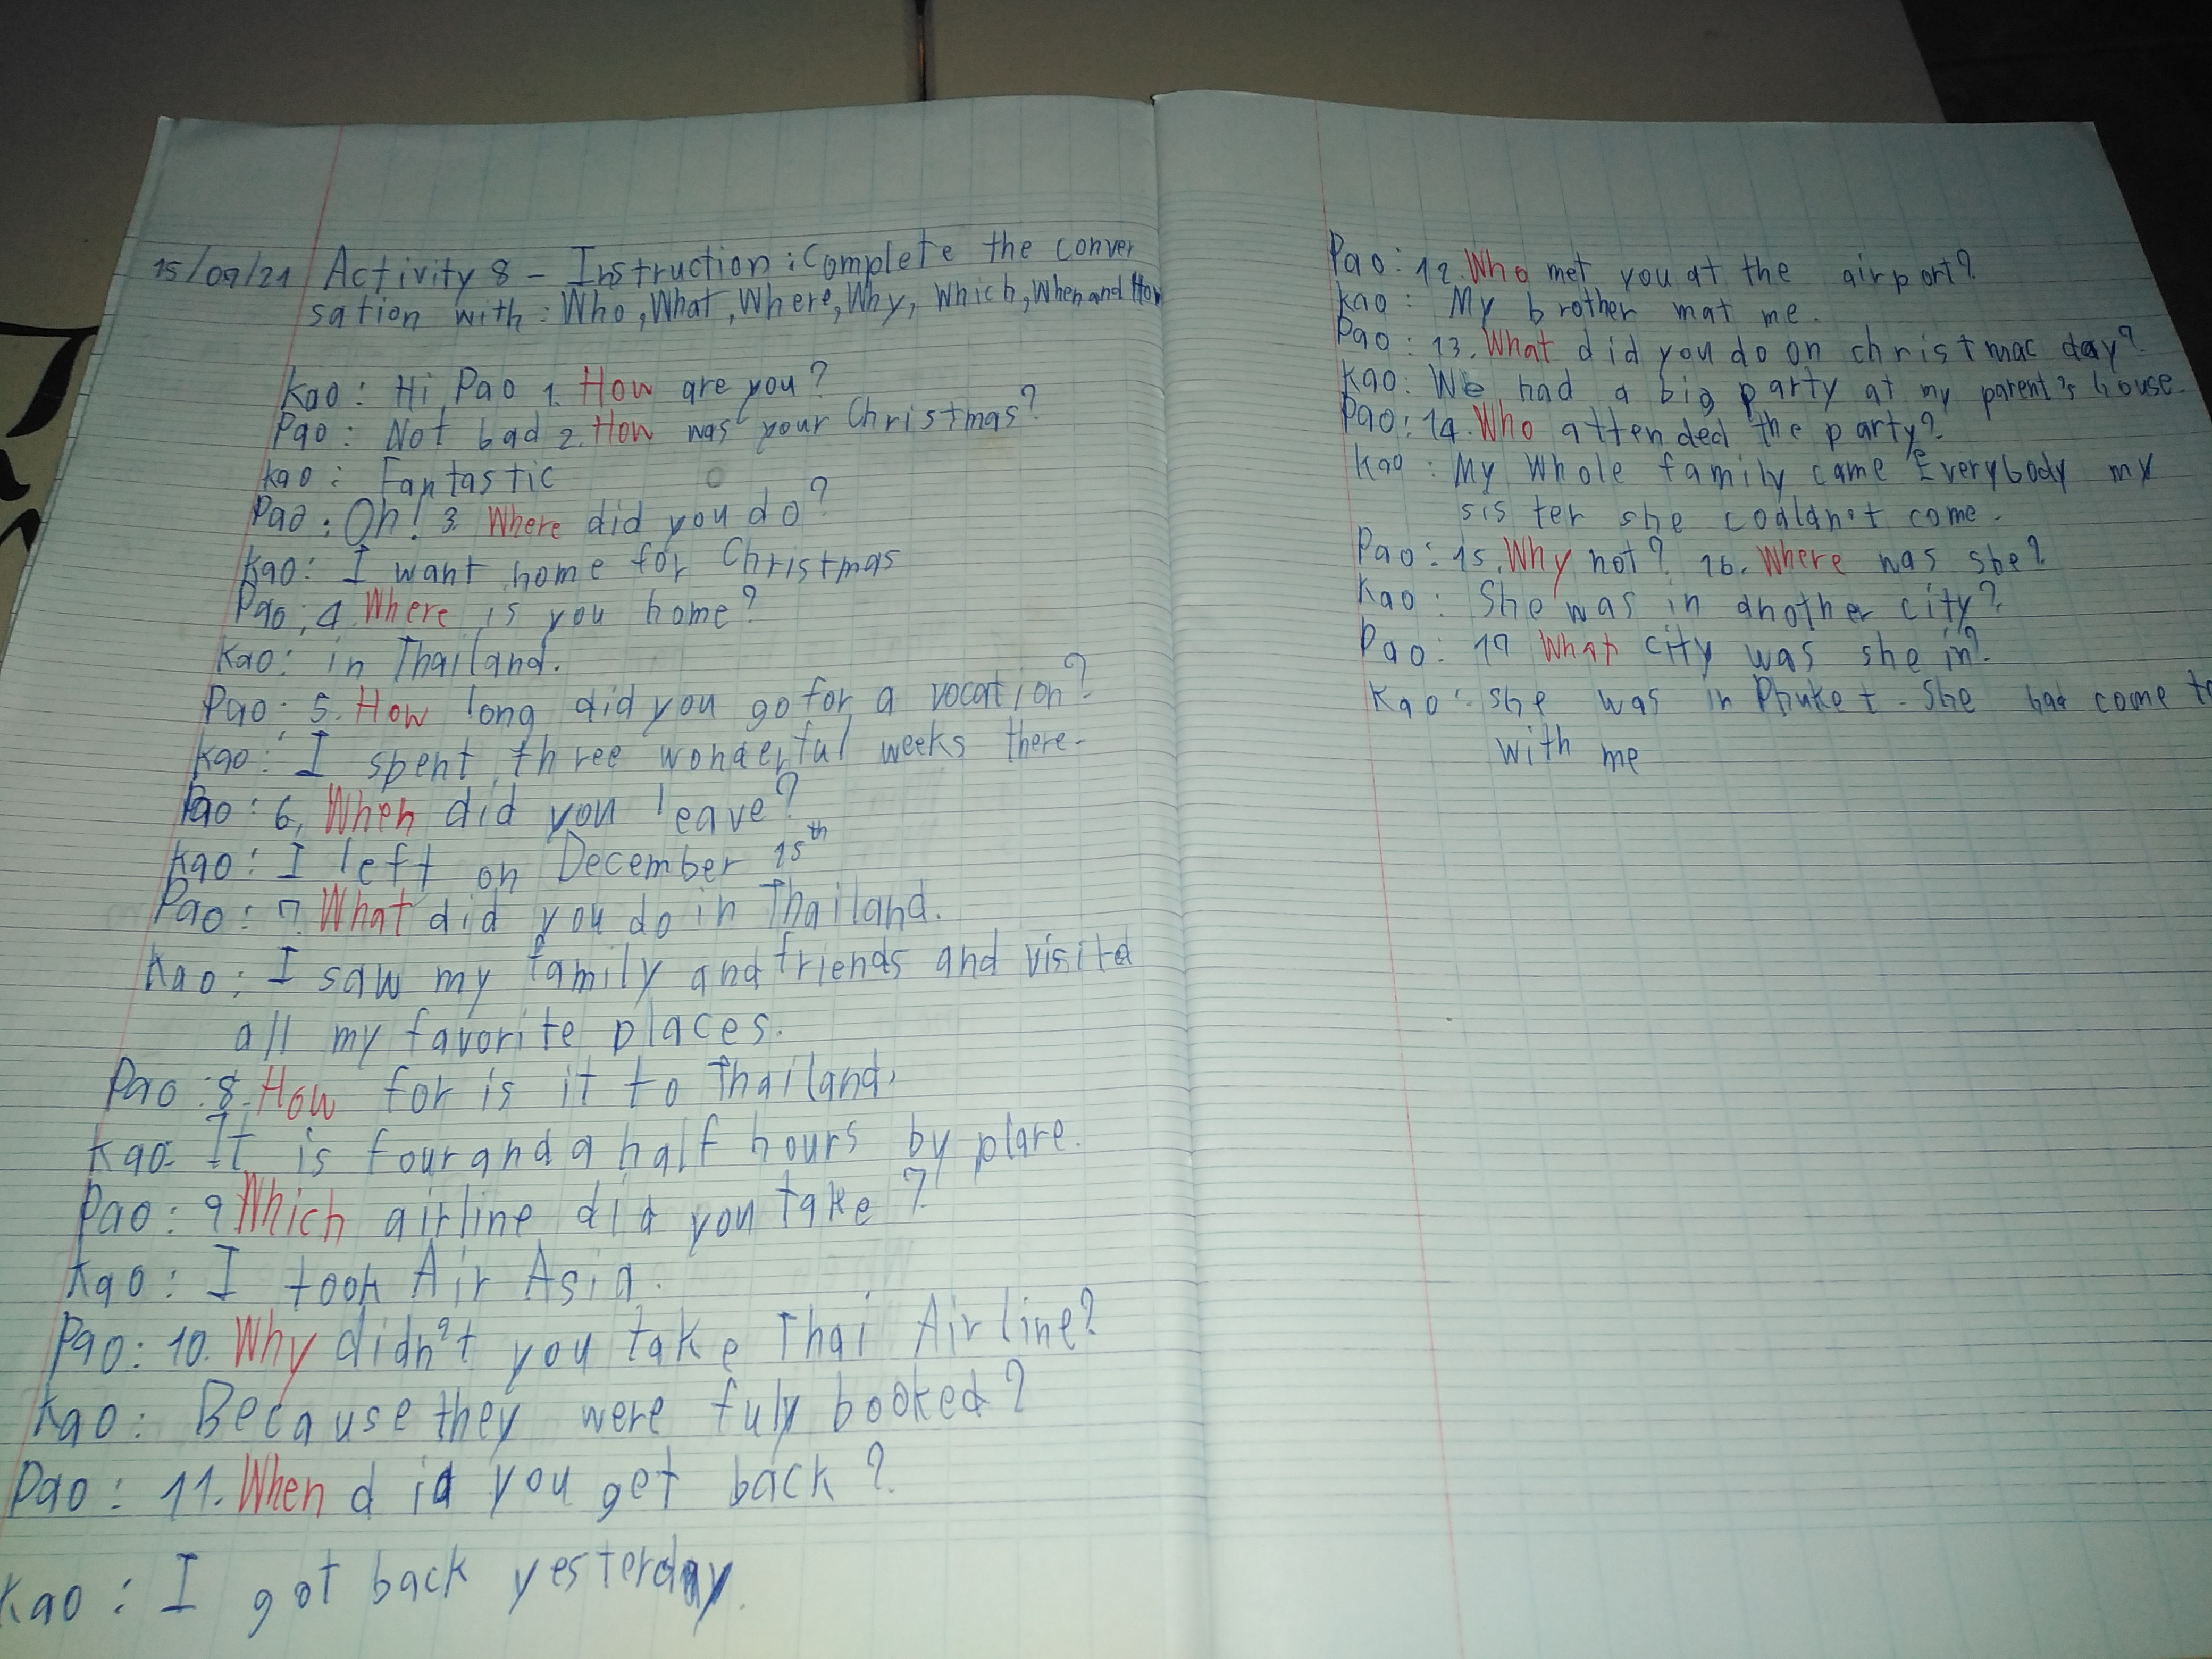 15/09/21 Activity 8 - Instruction: Complete the conver
sation with: Who, What, Where, Why, Which, When and How
Kao: Hi Pao 1. How are you?
Pao: Not bad 2. How was your Christmas?
Kao: Fantastic
Pao: Oh! 3. Where did you do?
Kao: I want home for Christmas
Pao: 4. Where is you home?
Kao: in Thailand.
Pao: 5. How long did you go for a vocation?
Kao: I spent three wonderful weeks there.
Pao: 6. When did you leave?
Kao: I left on December 15th
Pao: 7. What did you do in Thailand.
Kao: I saw my family and friends and visitd
all my favorite places.
Pao: 8. How for is it to Thailand.
Kao. It is four and a half hours by plare.
Pao: 9 Which airline did you take?
Kao: I took Air Asia.
Pao: 10. Why didn't you take Thai Airline?
Kao: Because they were fuly booked?
Pao: 11. When did you get back?
Kao: I got back yesterday.
Pao: 12. Who met you at the airport?
Kao: My brother mat me.
Pao: 13. What did you do on christmac day?
Kao: We had a big party at my parent's house.
Pao: 14. Who attended the party?
Kao: My Whole family came Everybody my
sister she coaldn't come.
Pao: 15. Why not? 16. Where was she?
Kao: She was in another city?
Pao: 17 What city was she in?
Kao: she was in Phuket. She had come to
with me